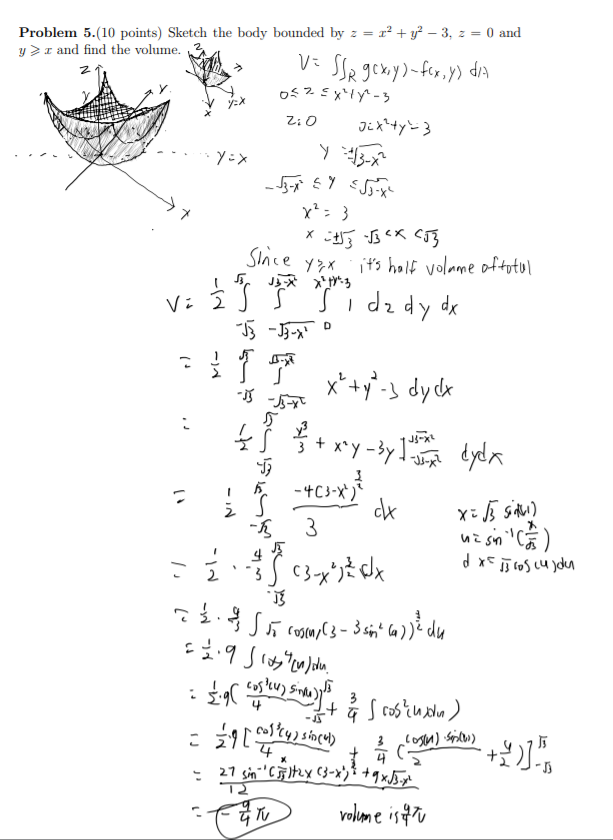 Problem 5.(10 points) Sketch the body bounded by z = x² + y² − 3, z = 0 and
y ⩾ x and find the volume.
z
z
y
y=x
x
y=x
x
V = ∫∫_R g(x,y) - f(x,y) dA
0 ≤ z ≤ x²+y²-3
z=0 0=x²+y²-3
y = ±√3-x²
-√3-x² ≤ y ≤ √3-x²
x² = 3
x = ±√3 -√3 < x < √3
Since y≥x it's half volume of total
V = 1/2 ∫_{-√3}^{√3} ∫_{-√3-x²}^{√3-x²} ∫_0^{x²+y²-3} 1 dz dy dx
= 1/2 ∫_{-√3}^{√3} ∫_{-√3-x²}^{√3-x²} x²+y²-3 dy dx
= 1/2 ∫_{-√3}^{√3} y³/3 + x²y - 3y ]_{-√3-x²}^{√3-x²} dy dx
= 1/2 ∫_{-√3}^{√3} -4(3-x²)^{3/2} / 3 dx
x = √3 sin(u)
u = sin⁻¹(x/√3)
dx = √3 cos(u) du
= 1/2 · -4/3 ∫_{-√3}^{√3} (3-x²)^{3/2} dx
∫ √3 cos(u) (3 - 3 sin²(u))^{3/2} du
= 1/2 · 9 ∫ cos⁴(u) du
= 1/2 · 9 ( cos³(u) sin(u) / 4 ]_{-√3}^{√3} + 3/4 ∫ cos²(u) du )
= 1/2 9 [ cos³(u) sin(u) / 4 + 3/4 ( cos(u) · sin(u) / 2 + u/2 ) ]_{-√3}^{√3}
= 27 sin⁻¹(x/√3) + 2x (3-x²)^{3/2} + 9x√3-x² / 12
= - 9/4 π volume is 9/4 π